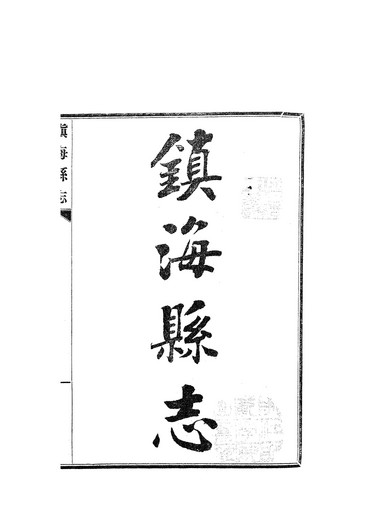 鎮海縣志
鎮海縣志
一